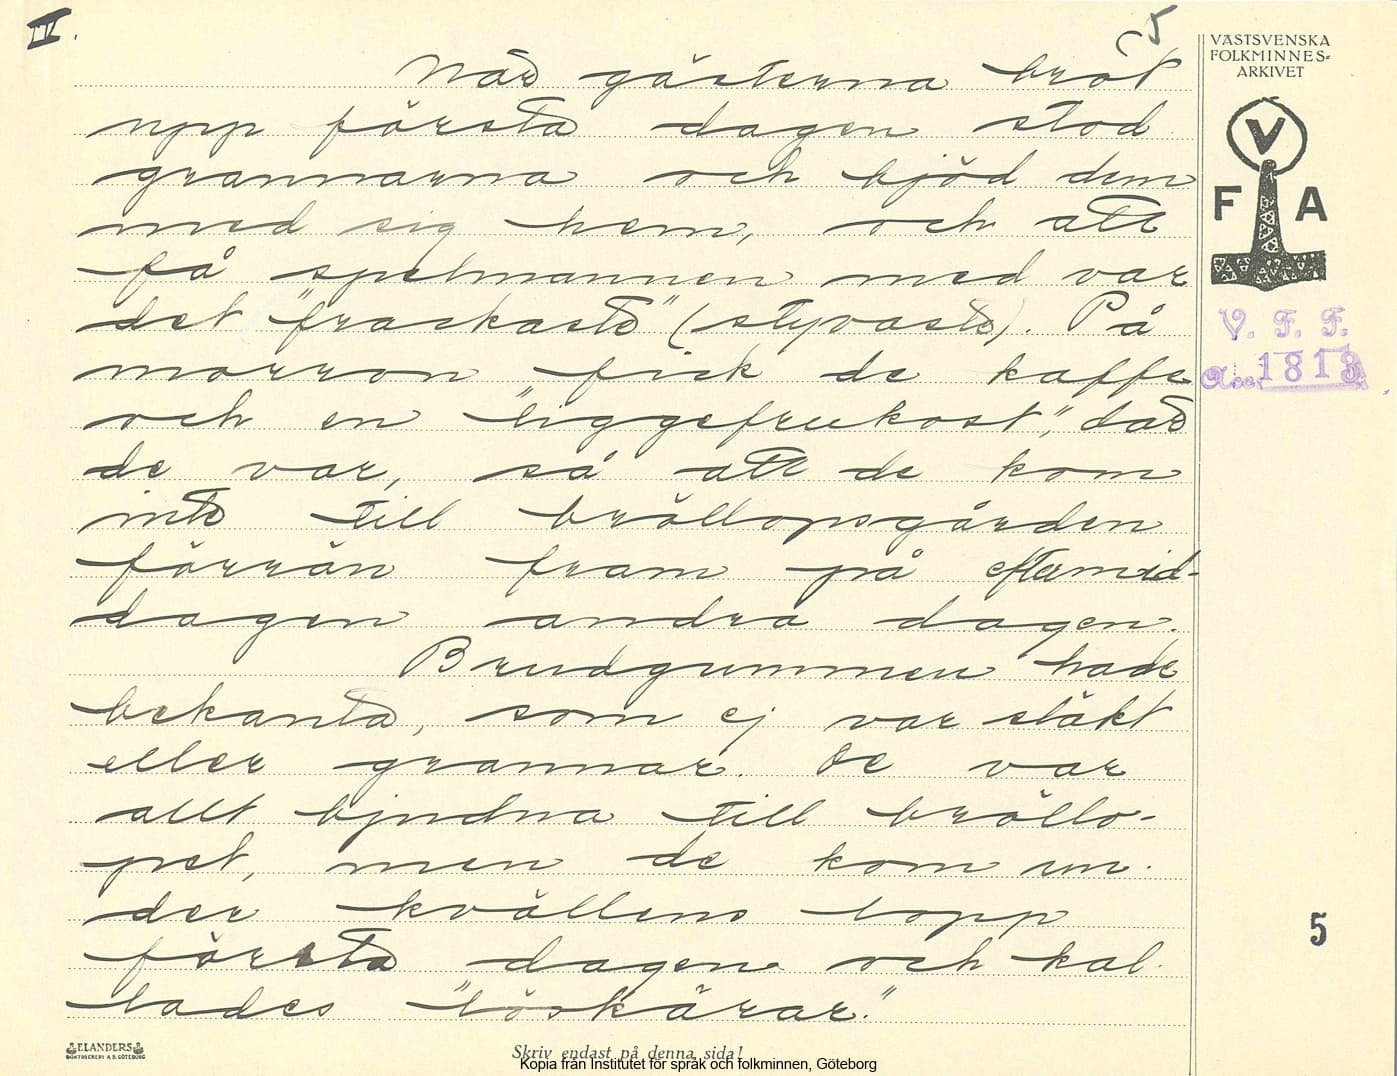 II.
5
När gästerna bröt
upp första dagen stod
grannarna och bjöd dem
med sig hem, och att
få spelmannen med var
det "fraskaste" (styvaste). På
morron fick de kaffe
och en "liggefrukost", där
de var, så att de kom
inte till bröllopsgården
förrän fram på eftermid-
dagen andra dagen.
Brudgummen hade
bekanta, som ej var släkt
eller grannar. De var
allt bjudna till bröllo-
pet, men de kom un-
der kvällens lopp
första dagen och kal-
lades "löskärar."
VÄSTSVENSKA
FOLKMINNES=
ARKIVET
V
F A
V. F. F.
Acc. 1813
5
ELANDERS
BOKTRYCKERI A.B. GÖTEBORG
Skriv endast på denna sida!
Kopia från Institutet för språk och folkminnen, Göteborg